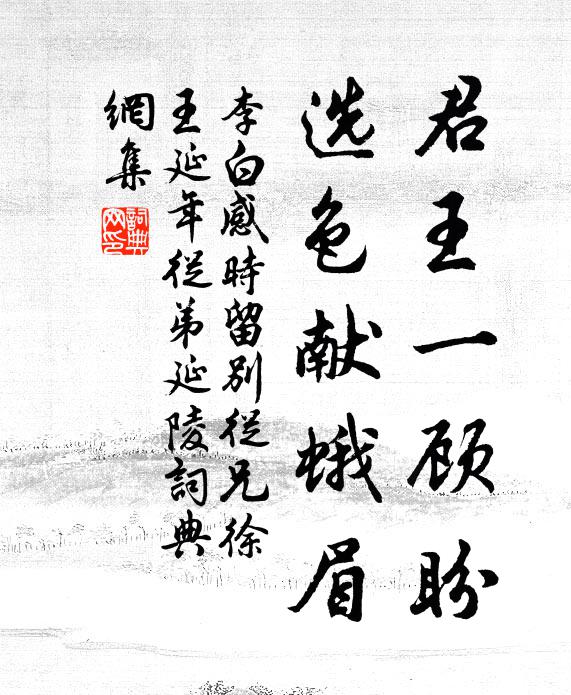 君王一顾盼
选色献蛾眉
李白感時留別從兄徐
王延年從弟延陵詞典
網集
詞典
网印